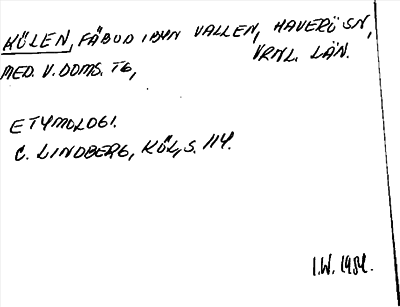 KÖLEN, FÄBOD I BYN VALLEN, HAVERÖ SN,
MED. V. DOMS. T6, VRNL. LÄN.
ETYMOLOGI.
C. LINDBERG, KÖL, S. 114.
I.W. 1984.